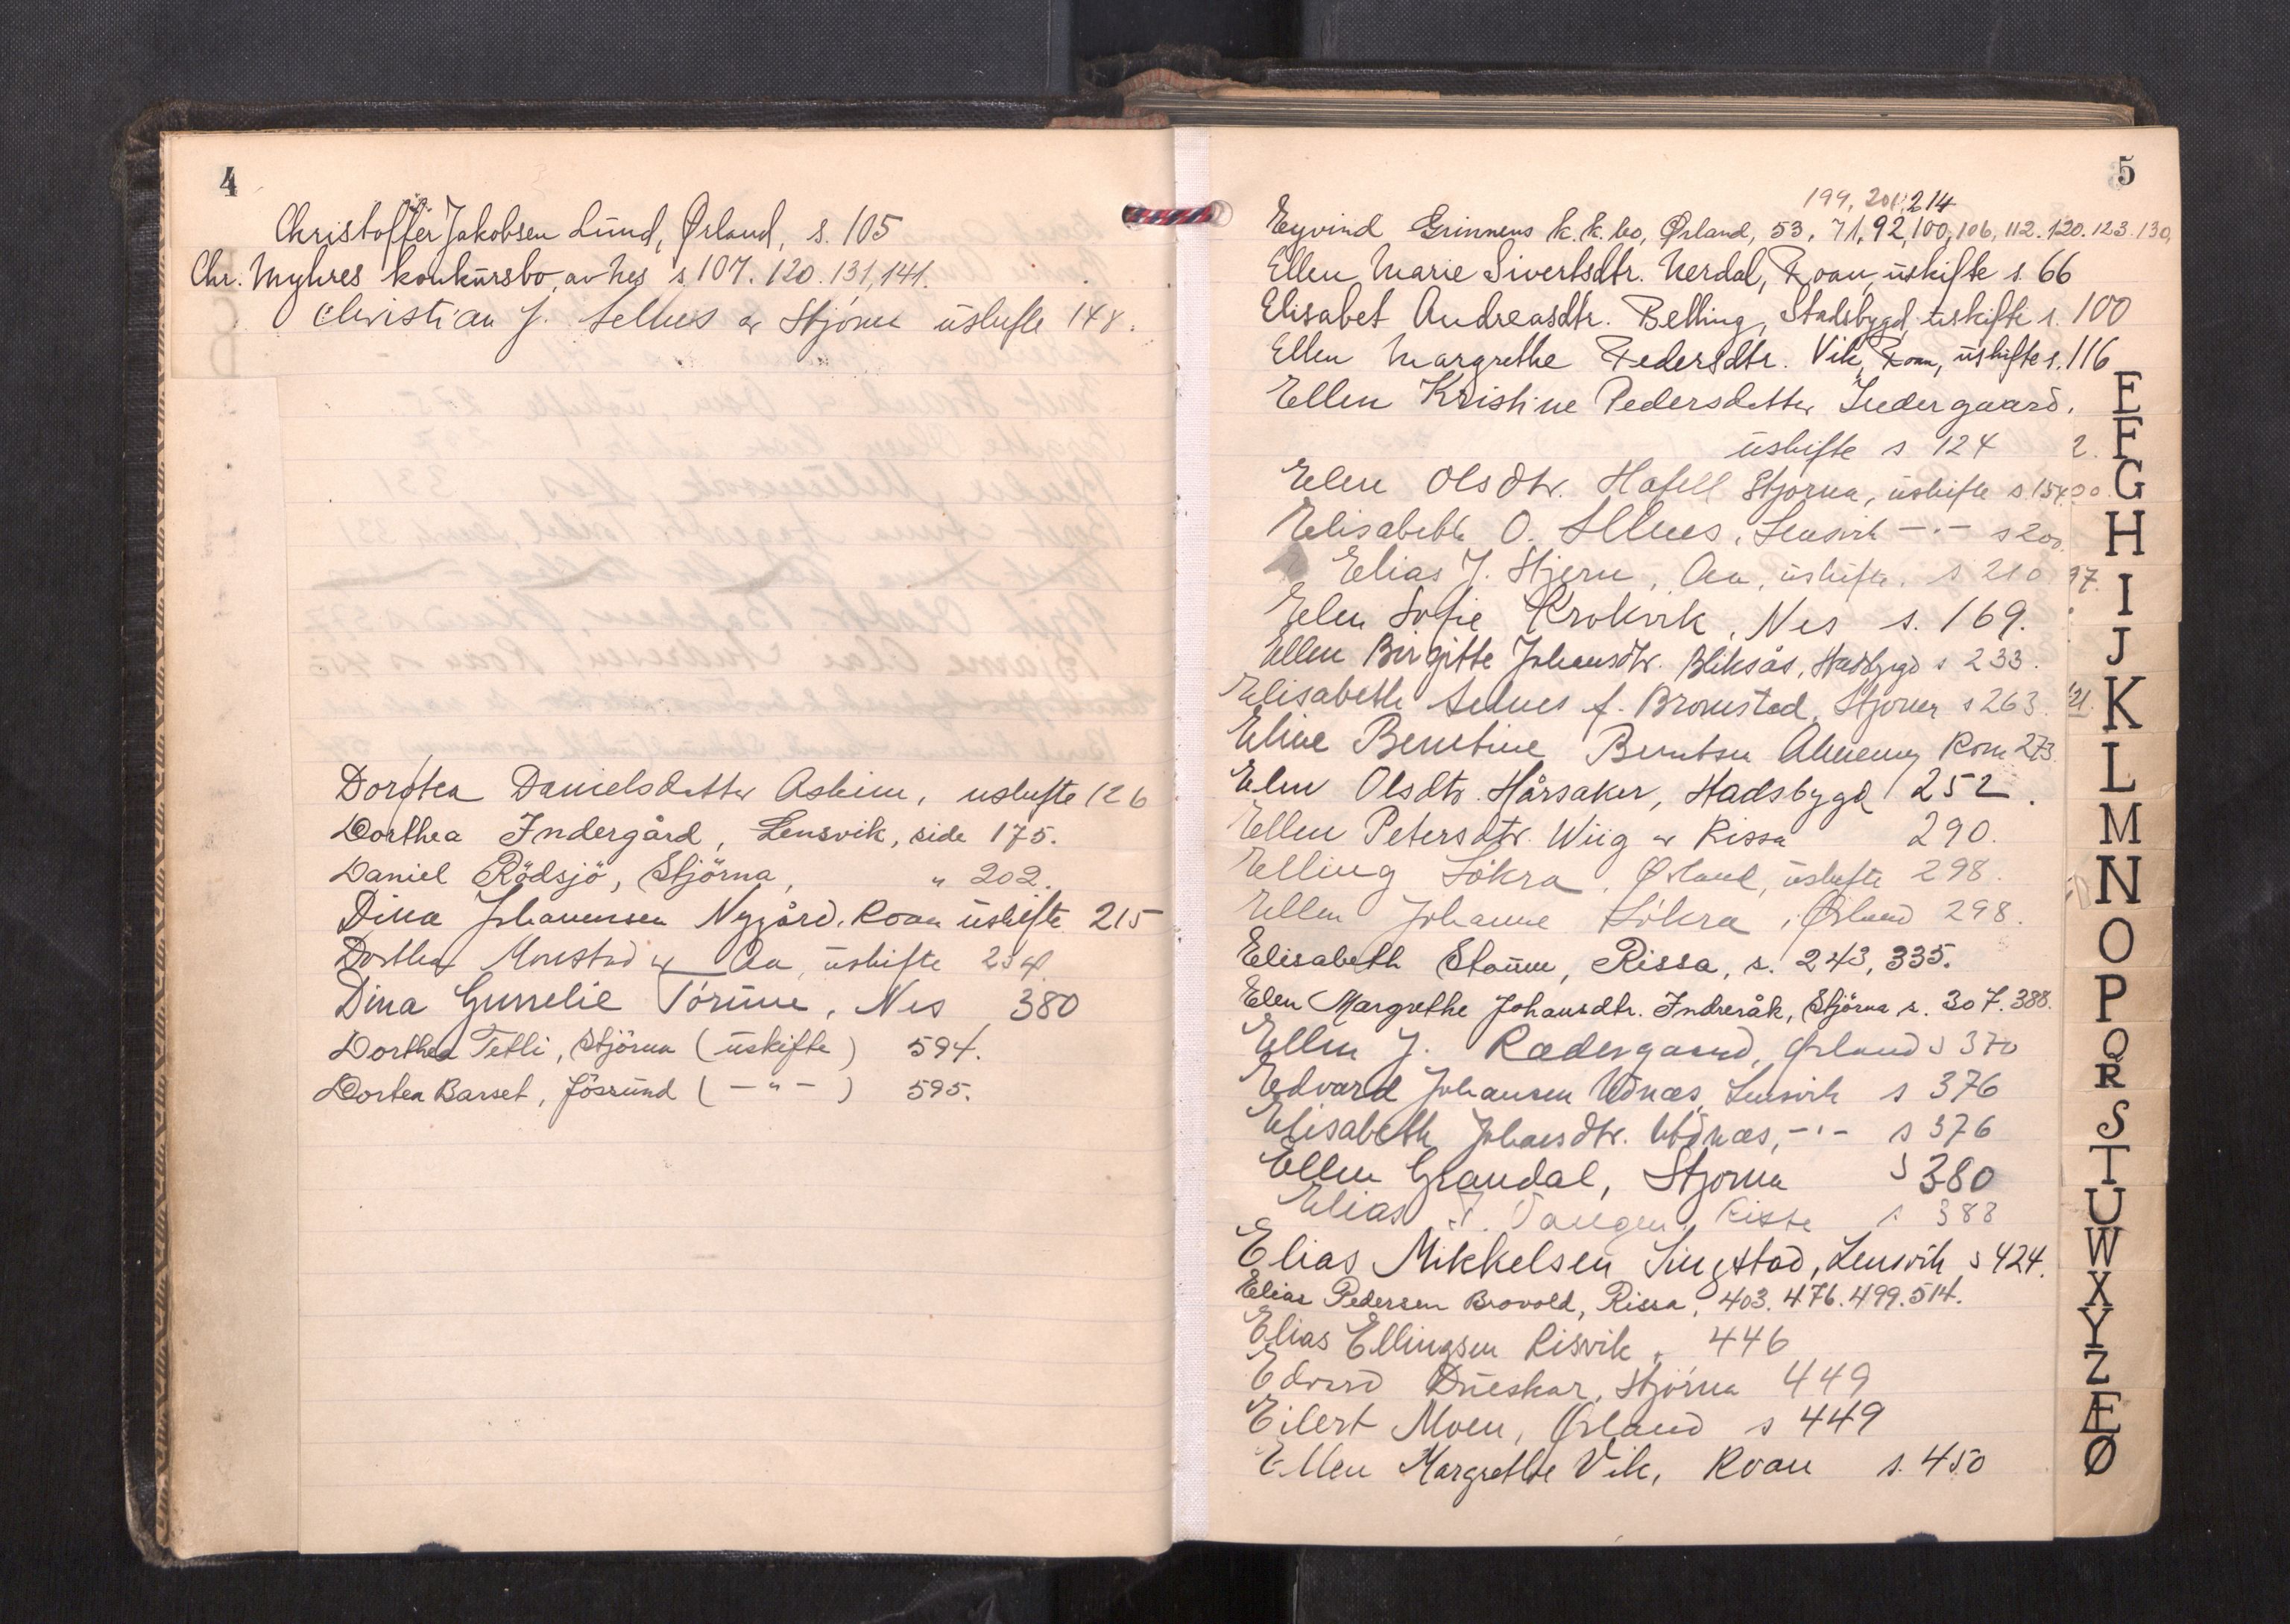 4
Christoffer Jakobsen Lund, Ørland, s. 105
Chr. Myhres konkursbo, av Nes s, 107. 120. 131, 141.
Christian J. Selnes av Stjörna uskifte 148.
Dorotea Danielsdatter Askim, uskifte 126
Dorthea Indergård, Lensvik, side 175.
Daniel Rödsjö, Stjörna, " 202.
Dina Johannesen Nygård, Roan uskifte 215
Dorthea Monstad Aa, uskifte 234
Dina Gurrelie, Nes 380
Dorthea Tetli, Stjörna (uskifte) 594.
Dortea Barset, Jössund ( - " - ) 595.
5
199, 201, 214
Eyvind Grinnens k.k.bo, Ørland, 53, 71, 92, 100, 106, 112. 120. 123. 130,
Ellen Marie Sivertsdtr. Nerdal, Roan, uskifte s. 66
Elisabet Andreasdtr. Belling, Stadsbygd, uskifte s. 100
Ellen Margrethe Pedersdtr. Vik, Roan, uskifte s. 116
Ellen Kristine Pedersdatter Indergaard,
uskifte s 124
Elen Olsdtr. Hafell Stjørna, uskifte s. 154
Elisabeth O. Selnes, Lensvik - " - s 200
Elias J. Stjern, Aa, uskifte, s 210
Elen Sofie Krokvik, Nes s. 169.
Ellen Birgitte Johansdtr. Bliksås, Stadsbygd s 233.
Elisabeth Selnes f. Bromstad, Stjørna s 263.
Eline Berntine Berntsen Roan 273
Elen Olsdtr. Hårsaker, Stadsbygd 252.
Ellen Petersdtr. Wiig av Rissa 290.
Elling Lökra, Ørland, uskifte 298.
Ellen Johanne Lökra, Ørland 298.
Elisabeth Staum, Rissa, s. 243, 335.
Elen Margrethe Johansdtr. Indreråk, Stjörna s. 307. 388.
Ellen J. Rædergaard, Ørland s 370
Edvard Johansen Udnæs, Lensvik s 376
Elisabeth Johansdtr. Udnæs, - " - s 376
Ellen Grandal, Stjørna s 380
Elias Vangen, Rissa s 388
Elias Mikkelsen Singstad, Lensvik s 424.
Elias Pedersen Brovold, Rissa, 403. 476. 499. 514.
Elias Ellingsen Risvik, 446
Edvard Dueskar, Stjörna 449
Eilert Moen, Ørland s 449
Ellen Margrethe Vik, Roan s. 450
E
F
G
H
I
J
K
L
M
N
O
P
Q
R
S
T
U
W
X
Y
Z
Æ
Ø